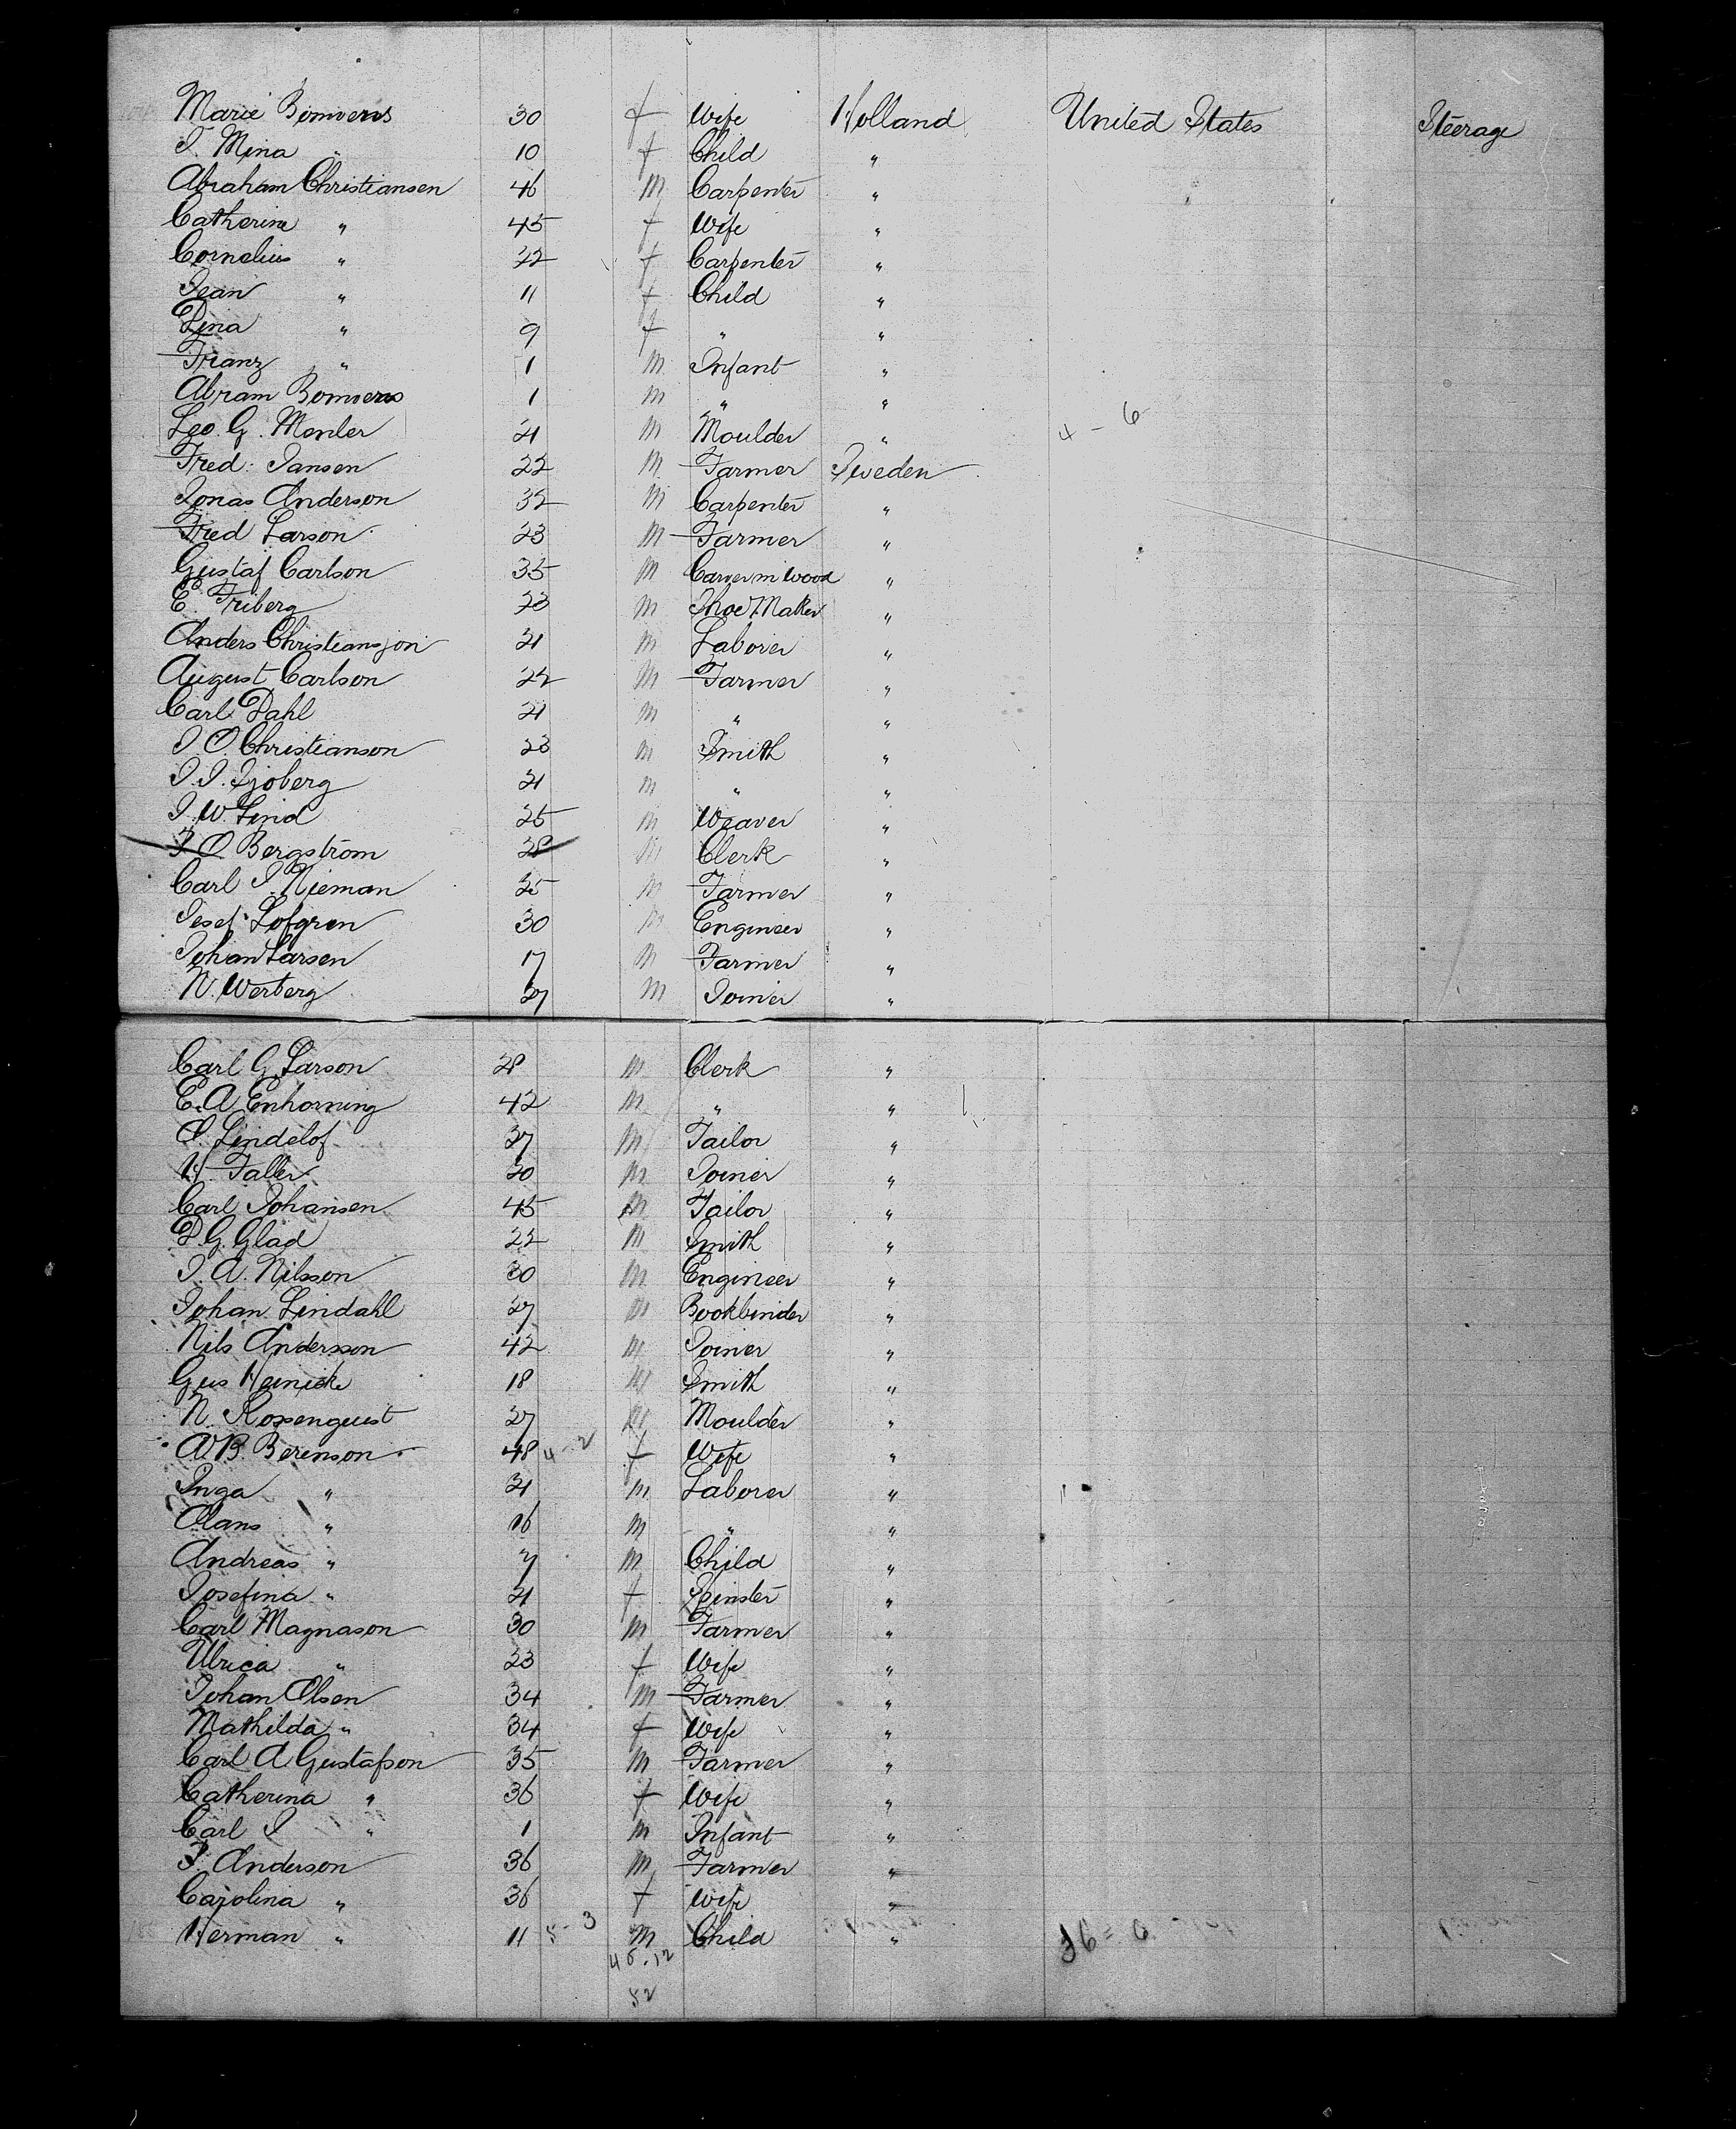 Marie Bomvers 30 f Wife Holland United States Steerage
J. Mina " 10 f Child "
Abraham Christiansen 46 m Carpenter "
Catherine " 45 f Wife "
Cornelius " 22 f Carpenter "
Jean " 11 f Child "
Dina " 9 f " "
Franz " 1 m Infant "
Abram Bomvers 1 m " "
Leo. G. Menler 21 m Moulder " 4 - 6
Fred. Jansen 22 m Farmer Sweden
Jonas Anderson 32 m Carpenter "
Fred Larson 23 m Farmer "
Gustaf Carlson 35 m Carver in wood "
E. Friberg 23 m Shoe Maker "
Anders Christiansson 21 m Laborer "
August Carlson 22 m Farmer "
Carl Dahl 21 m " "
J. O. Christianson 23 m Smith "
J. J. Sjoberg 21 m " "
J. W. Lind 25 m Weaver "
F O Bergström 28 m Clerk "
Carl J. Nieman 25 m Farmer "
Josef Lofgren 30 m Engineer "
Johan Larsen 17 m Farmer "
N. Werberg 27 m Joiner "
Carl G. Larson 28 m Clerk "
E. A. Enhorning 42 m " "
O. Lindelof 27 m Tailor "
H. Faller 20 m Joiner "
Carl Johansen 45 m Tailor "
P. G. Glad 22 m Smith "
J. A. Nilsson 30 m Engineer "
Johan Lindahl 27 m Bookbinder "
Nils Andersson 42 m Joiner "
Gus Heinicke 18 m Smith "
N. Rosenquist 27 m Moulder "
A. B. Berenson 48 4-2 f Wife "
Inga " 21 m Laborer "
Olans " 16 m " "
Andreas " 7 m Child "
Josefina " 21 f Spinster "
Carl Magnason 30 m Farmer "
Ulrica " 23 f Wife "
Johan Olsen 34 m Farmer "
Mathilda " 34 f Wife "
Carl A Gustafson 35 m Farmer "
Catherina " 36 f Wife "
Carl J " 1 m Infant "
F. Anderson 36 m Farmer "
Carolina " 36 f Wife "
Herman " 11 5-3 m Child " 36 = 6
40.12
52